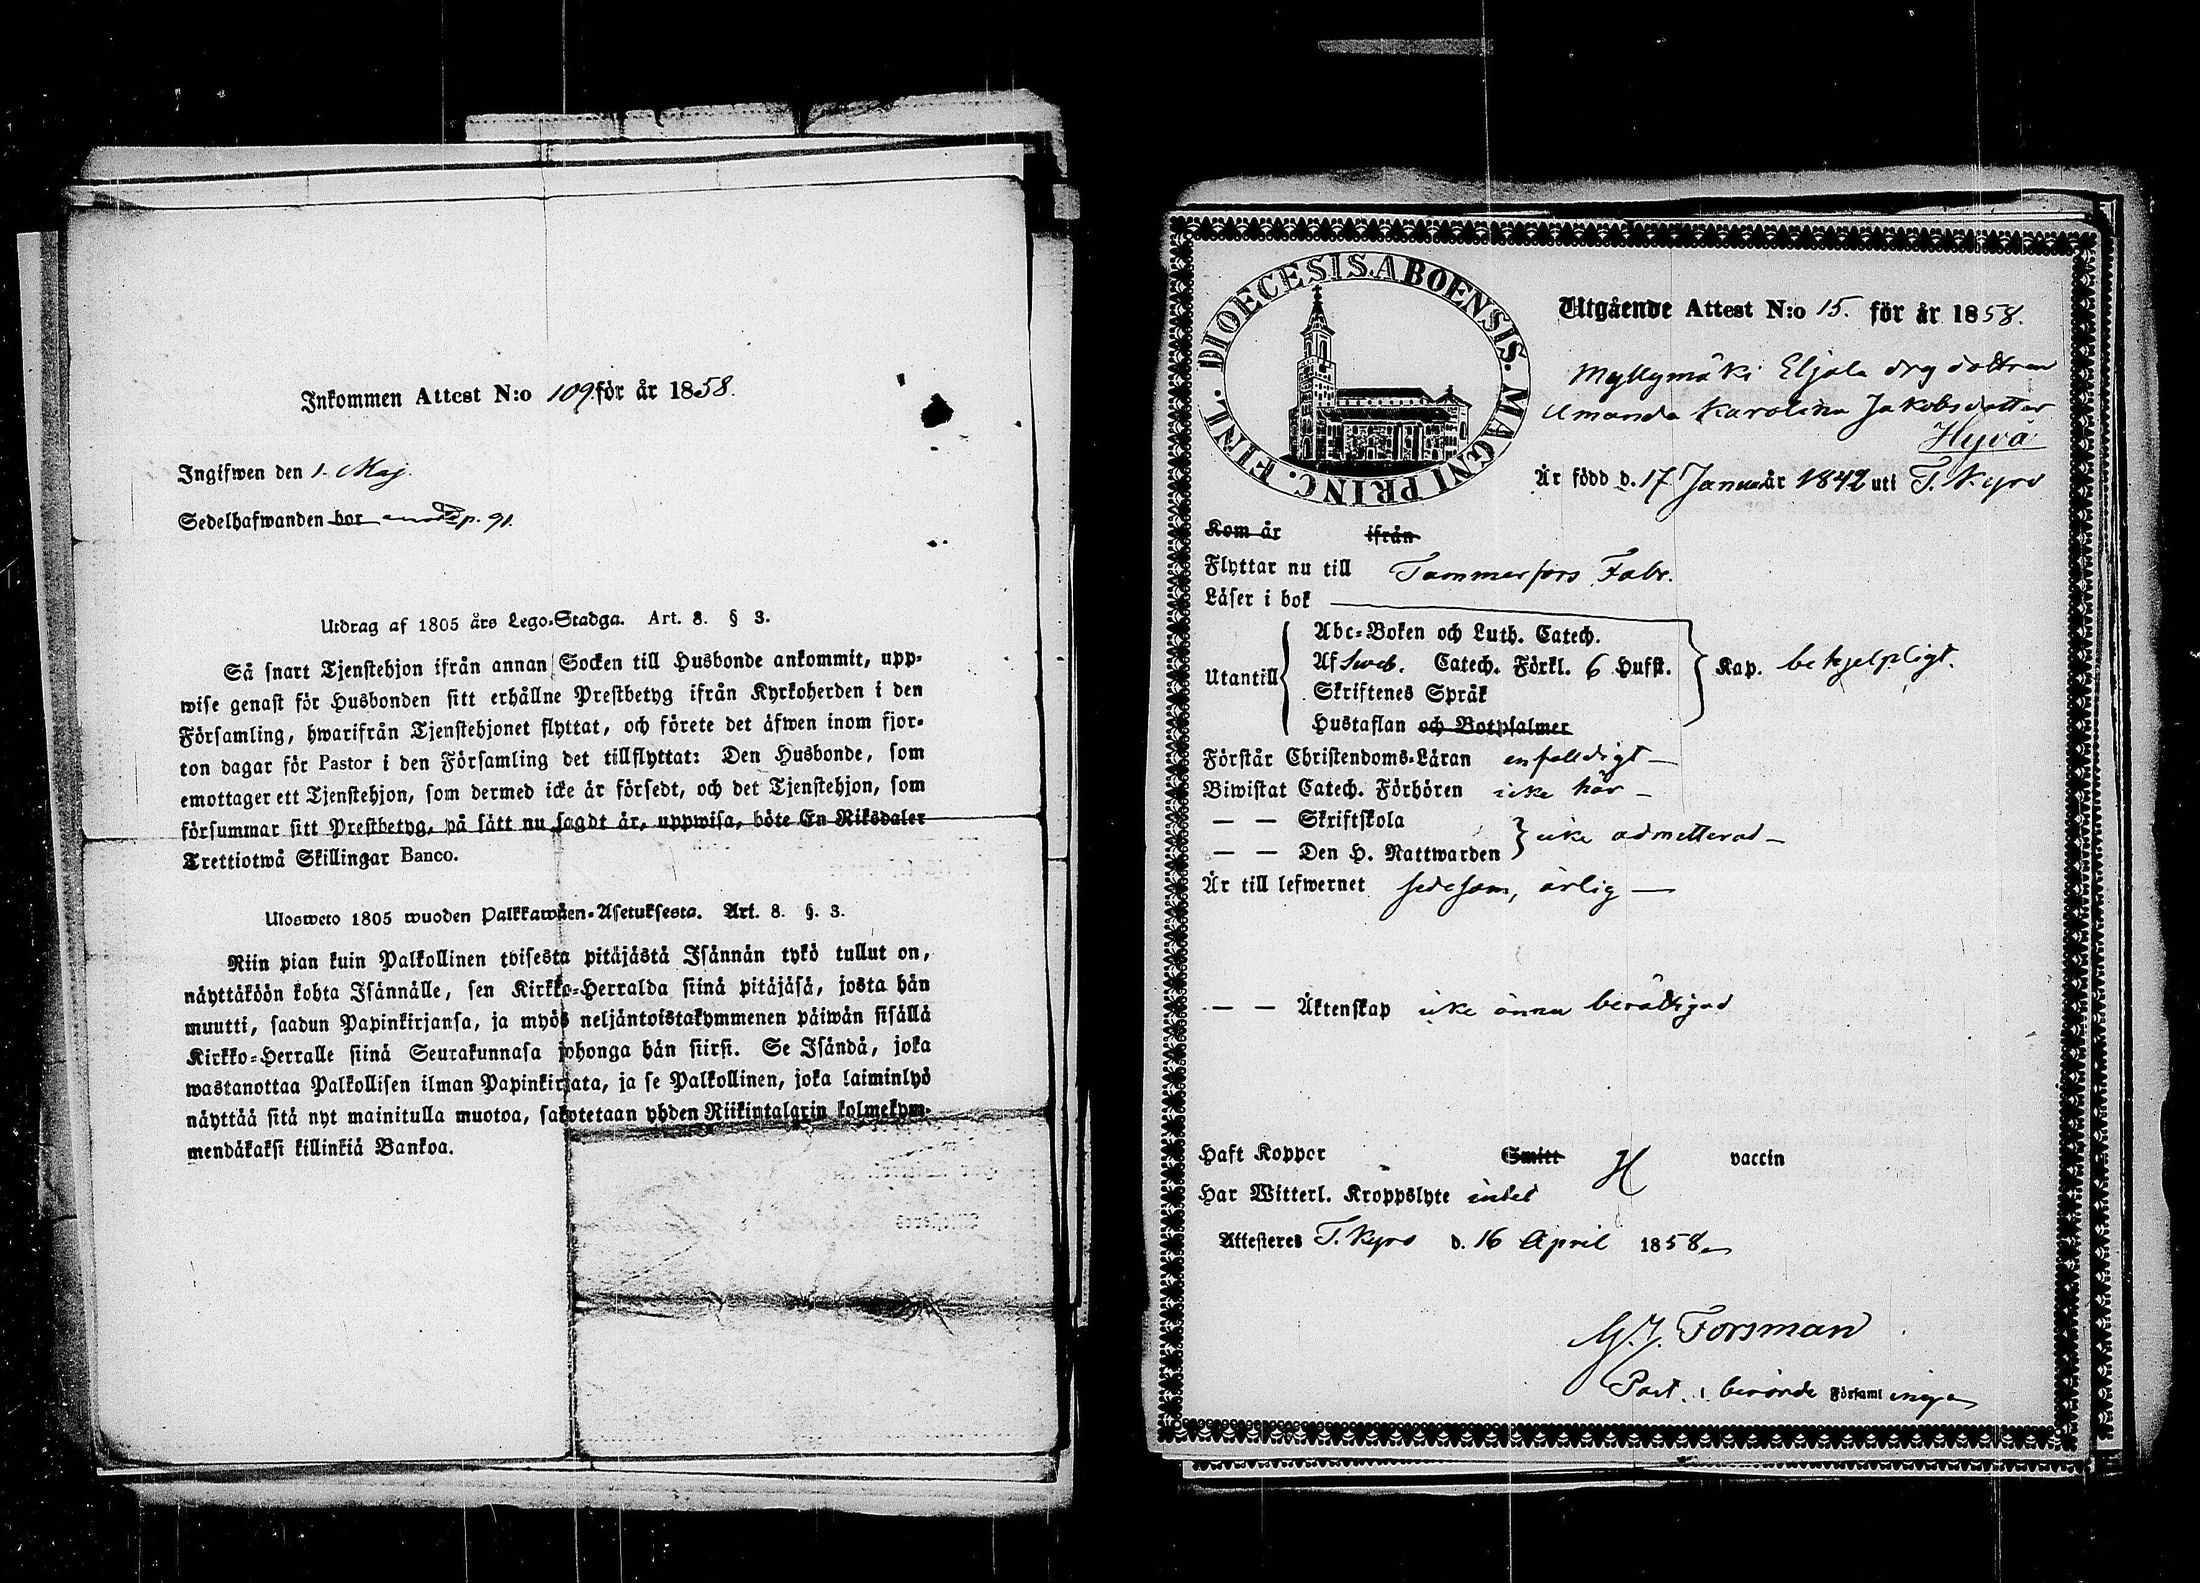 Inkommen Attest N:o 109 för år 1858.
Ingifwen den 1. Maj.
Sedelhafwanden bor p. 91.
Utdrag af 1805 års Lego-Stadga. Art. 8. § 3.
Så snart Tjenstehjon ifrån annan Socken till Husbonde ankommit, upp-
wise genast för Husbonden sitt erhållne Prestbetyg ifrån Kyrkoherden i den
Församling, hwarifrån Tjenstehjonet flyttat, och förete det äfwen inom fjor-
ton dagar för Pastor i den Församling det tillflyttat: Den Husbonde, som
emottager ett Tjenstehjon, som dermed icke är försedt, och det Tjenstehjon, som
försummar sitt Prestbetyg, på sätt nu sagdt är, uppwisa, böte En Riksdaler
Trettiotwå Skillingar Banco.
Ulosweto 1805 wuoden Palkkawäen-Asetuksesta. Art. 8. §. 3.
Niin pian kuin Palkollinen toisesta pitäjästä Isännän tykö tullut on,
näyttäköön kohta Isännälle, sen Kirkko-Herralda siinä pitäjäsä, josta hän
muutti, saadun Papinkirjansa, ja myös neljäntoistakymmenen päiwän sisällä
Kirkko-Herralle siinä Seurakunnasa johonga hän siirsi. Se Isändä, joka
wastanottaa Palkollisen ilman Papinkirjata, ja se Palkollinen, joka laiminlyö
näyttää sitä nyt mainitulla muotoa, sakotetaan yhden Riikintalarin kolmekym-
mendäkaksi killinkiä Bankoa.
DIOECESIS. ABOENSIS. MAGNI PRINC. FINL.
Utgående Attest N:o 15. för år 1858.
Myllymäki Eljala drg dottren
Amanda Karolina Jakobsdotter
Hyvä
Är född d. 17 Januar år 1842 uti T. Kyro
Kom år ifrån
Flyttar nu till Tammerfors Fabr.
Läser i bok
Utantill
Abc-Boken och Luth. Catech.
Af Sweb. Catech. Förkl. 6 Hufst.
Skriftenes Språk
Hustaflan och Botpsalmer
Kap. behjelpligt.
Förstår Christendoms-Läran enfaldigt —
Biwistat Catech. Förhören icke här —
— — Skriftskola
— — Den H. Nattwarden
icke admitterad —
Är till lefwernet sedesam, ärlig —
— — Äktenskap icke ännu berättigad
Haft Koppor Smitt H vaccin
Har Witterl. Kroppslyte intet
Attesteres T. Kyro d. 16 April 1858
G. J. Forsman
Past. i berörde Församlingen